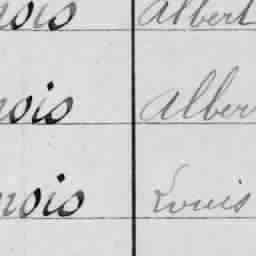 nois Albert
nois Alber
nois Louis